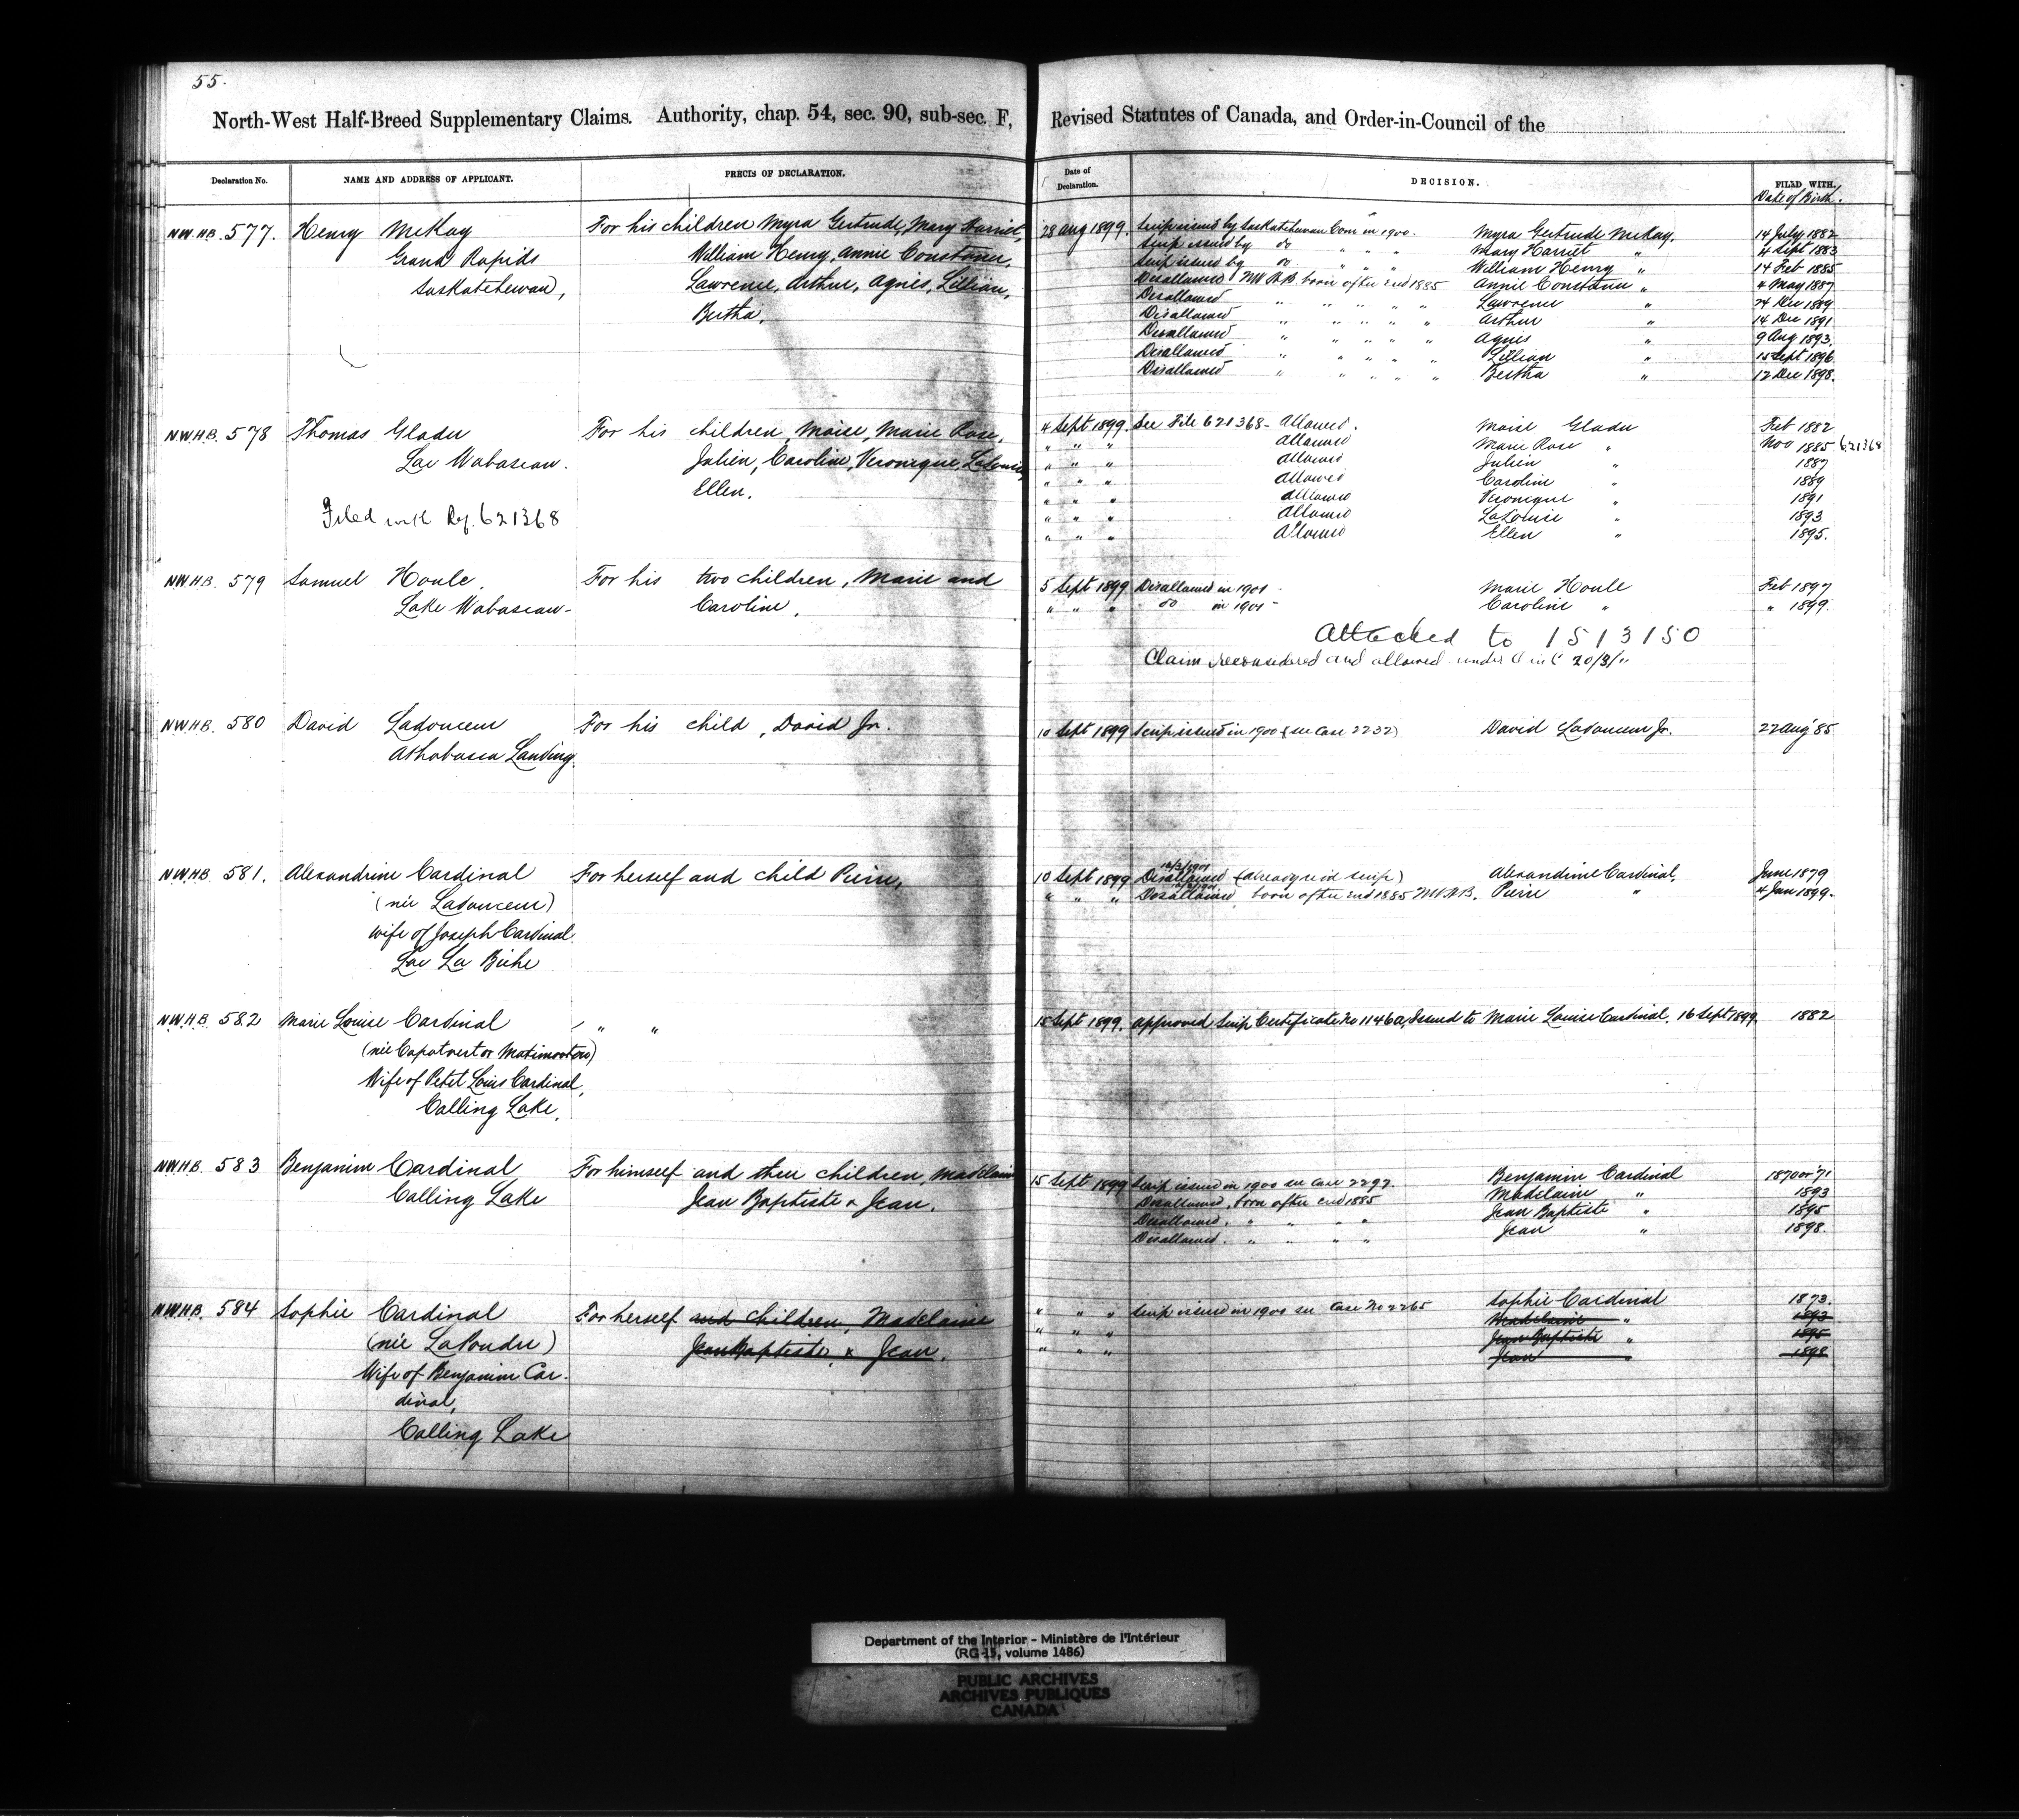 55.
North-West Half-Breed Supplementary Claims. Authority, chap. 54, sec. 90, sub-sec. F, Revised Statutes of Canada, and Order-in-Council of the
Declaration No. NAME AND ADDRESS OF APPLICANT. PRECIS OF DECLARATION. Date of Declaration. DECISION. FILED WITH.
Date of Birth.
N.W.H.B. 577. Henry McKay For his children Myra Gertrude, Mary Harriet, 28 Aug 1899. Scrip issued by Saskatchewan Com in 1900. Myra Gertrude McKay. 14 July 1882
Grand Rapids William Henry, Annie Constance, Scrip issued by do " " " Mary Harriet " 4 Sept 1883
Saskatchewan, Lawrence, Arthur, Agnes, Lillian, Scrip issued by do " " " William Henry " 14 Feb 1885
Bertha. Disallowed NWHB born after end 1885 Annie Constance " 4 May 1887
Disallowed " " " " " Lawrence " 24 Dec 1889
Disallowed " " " " " Arthur " 14 Dec 1891
Disallowed " " " " " Agnes " 9 Aug 1893.
Disallowed " " " " " Lillian " 15 Sept 1896
Disallowed " " " " " Bertha " 12 Dec 1898.
N.W.H.B. 578 Thomas Gladu For his children, Moise, Marie Rose, 4 Sept 1899. See File 621368 - Allowed. Moise Gladu Feb 1882
Lac Wabascaw. Julien, Caroline, Veronique, LaLouise, " " " Allowed Marie Rose " Nov 1885 621368
Ellen. " " " Allowed Julien " 1887
" " " Allowed Caroline " 1889
Filed with Ref. 621368 " " " Allowed Veronique " 1891
" " " Allowed LaLouise " 1893
" " " Allowed Ellen " 1895.
N.W.H.B. 579 Samuel Houle. For his two children, Marie and 5 Sept 1899 Disallowed in 1901 - Marie Houle Feb 1897
Lake Wabascaw - Caroline. " " " do in 1901 - Caroline " " 1899
Attached to 1513150
Claim reconsidered and allowed under O in C 20/3/"
N.W.H.B. 580 David Ladouceur For his child, David Jr. 10 Sept 1899 Scrip issued in 1900 (see Case 2232) David Ladouceur Jr. 22 Aug '85
Athabasca Landing.
N.W.H.B. 581. Alexandrine Cardinal For herself and child Pierre. 10 Sept 1899 Disallowed (already rec'd scrip) Alexandrine Cardinal. June 1879
(née Ladouceur) " " " Disallowed, born after end 1885 NWHB. Pierre " 4 Jan 1899.
wife of Joseph Cardinal
Lac La Biche
N.W.H.B. 582 Marie Louise Cardinal " " 15 Sept 1899. Approved Scrip Certificate No 1146a, Issued to Marie Louise Cardinal. 16 Sept 1899. 1882
Wife of Petit Louis Cardinal,
Calling Lake.
N.W.H.B. 583 Benjamin Cardinal For himself and their children, Madelaine 15 Sept 1899 Scrip issued in 1900 see Case 2297. Benjamin Cardinal 1870 or '71
Calling Lake Jean Baptiste & Jean. Disallowed, born after end 1885 Madelaine " 1893
Disallowed. " " " " Jean Baptiste " 1895
Disallowed. " " " " Jean " 1898.
N.W.H.B. 584 Sophie Cardinal For herself and children, Madelaine " " " Scrip issued in 1900 see Case No 2265 Sophie Cardinal 1873.
(née LaPoudre) Jean Baptiste, & Jean. " " " Madelaine " 1893
Wife of Benjamin Car- " " " Jean Baptiste " 1895
dinal, Jean " 1898
Calling Lake
Department of the Interior - Ministère de l'Intérieur
(RG-15, volume 1486)
PUBLIC ARCHIVES
ARCHIVES PUBLIQUES
CANADA